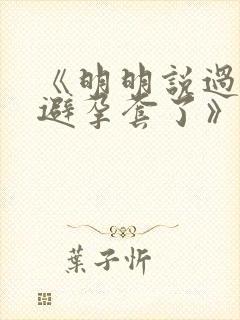 《明明說過
避孕套了》
葉子忻